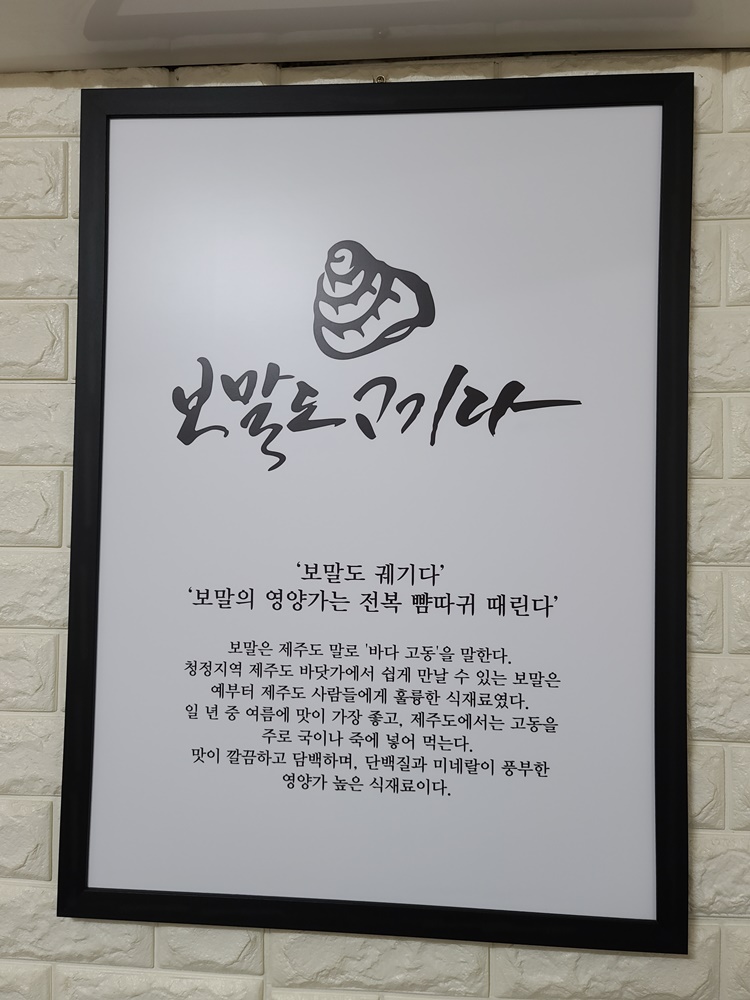 보말도 고기다
‘보말도 궤기다’
‘보말의 영양가는 전복 뺨따귀 때린다’
보말은 제주도 말로 '바다 고동'을 말한다.
청정지역 제주도 바닷가에서 쉽게 만날 수 있는 보말은
예부터 제주도 사람들에게 훌륭한 식재료였다.
일 년 중 여름에 맛이 가장 좋고, 제주도에서는 고동을
주로 국이나 죽에 넣어 먹는다.
맛이 깔끔하고 담백하며, 단백질과 미네랄이 풍부한
영양가 높은 식재료이다.